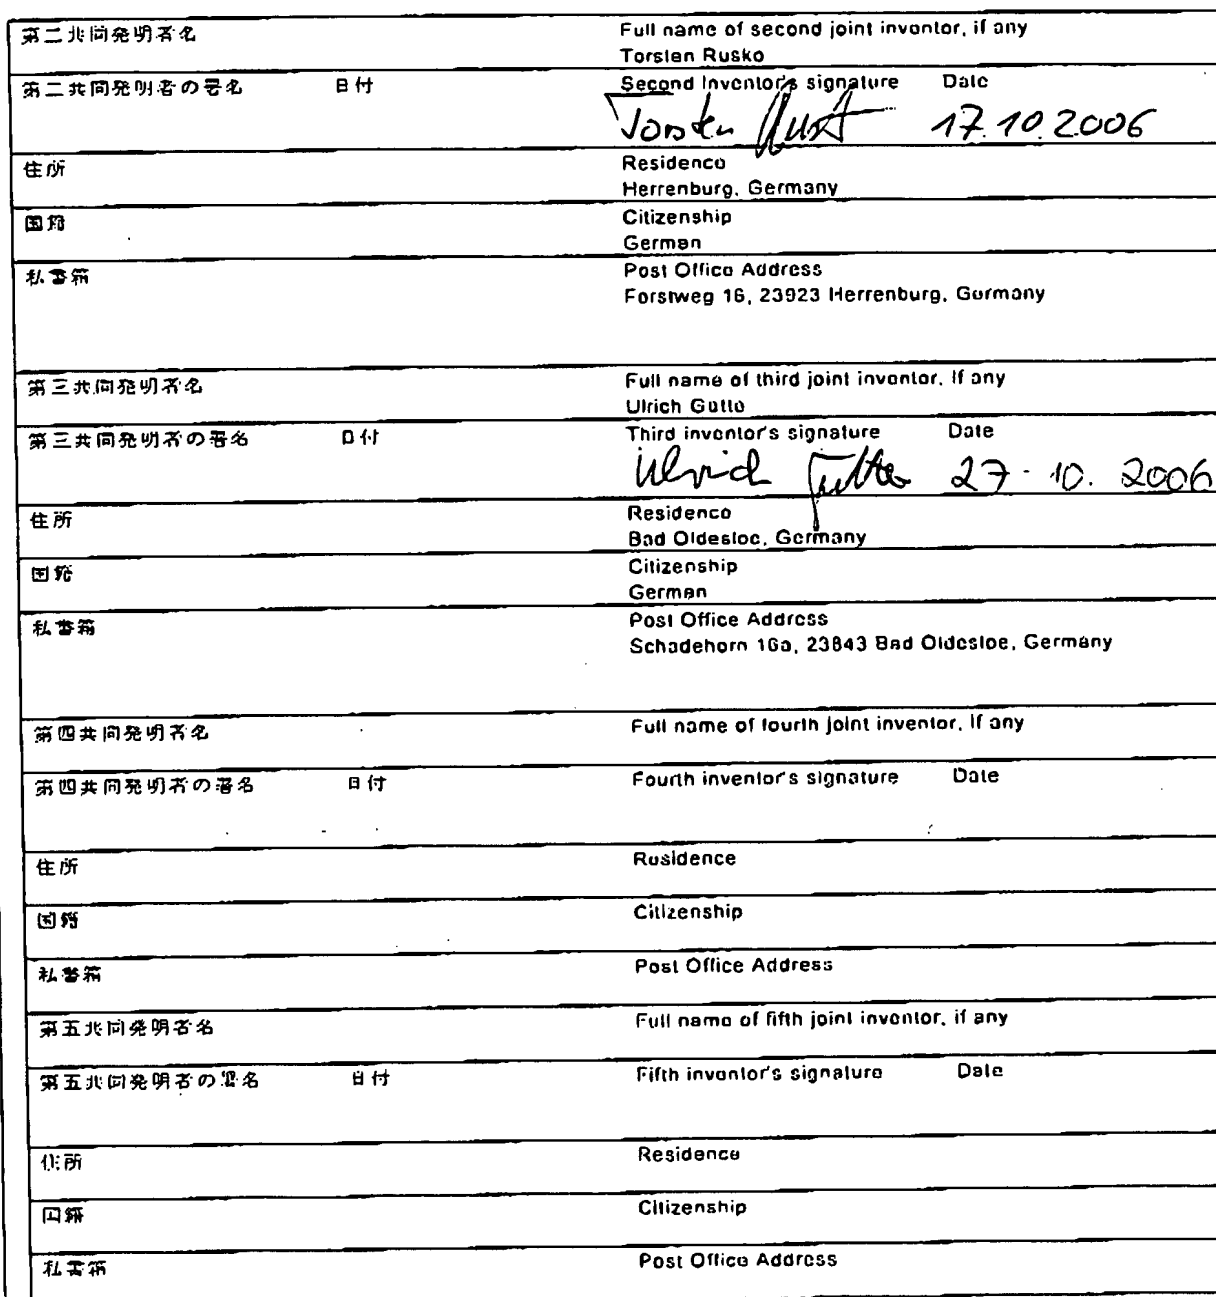 第二共同発明者名 Full name of second joint inventor, if any
Torsten Rusko
第二共同発明者の署名 日付 Second Inventor's signature Date
Torsten 17.10.2006
住所 Residence
Herrenburg, Germany
国籍 Citizenship
German
私書箱 Post Office Address
Forstweg 16, 23923 Herrenburg, Germany
第三共同発明者名 Full name of third joint inventor, if any
Ulrich Gutte
第三共同発明者の署名 日付 Third inventor's signature Date
Ulrich 27.10.2006
住所 Residence
Bad Oldesloe, Germany
国籍 Citizenship
German
私書箱 Post Office Address
Schadehorn 16a, 23843 Bad Oldesloe, Germany
第四共同発明者名 Full name of fourth joint inventor, if any
第四共同発明者の署名 日付 Fourth inventor's signature Date
住所 Residence
国籍 Citizenship
私書箱 Post Office Address
第五共同発明者名 Full name of fifth joint inventor, if any
第五共同発明者の署名 日付 Fifth inventor's signature Date
住所 Residence
国籍 Citizenship
私書箱 Post Office Address